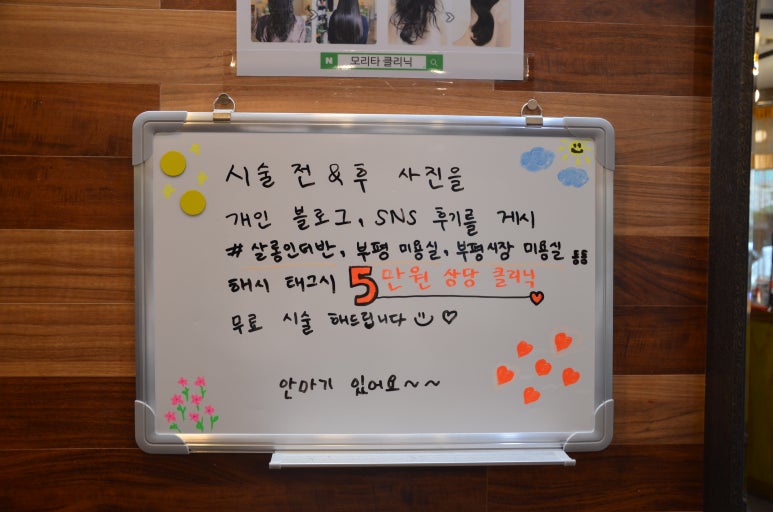 N 모리타 클리닉
시술 전 & 후 사진을
개인 블로그, SNS 후기를 게시
# 살롱인더반, 부평 미용실, 부평시장 미용실 등등
해시 태그시 5만원 상당 클리닉
무료 시술 해드립니다
안마기 있어요~~